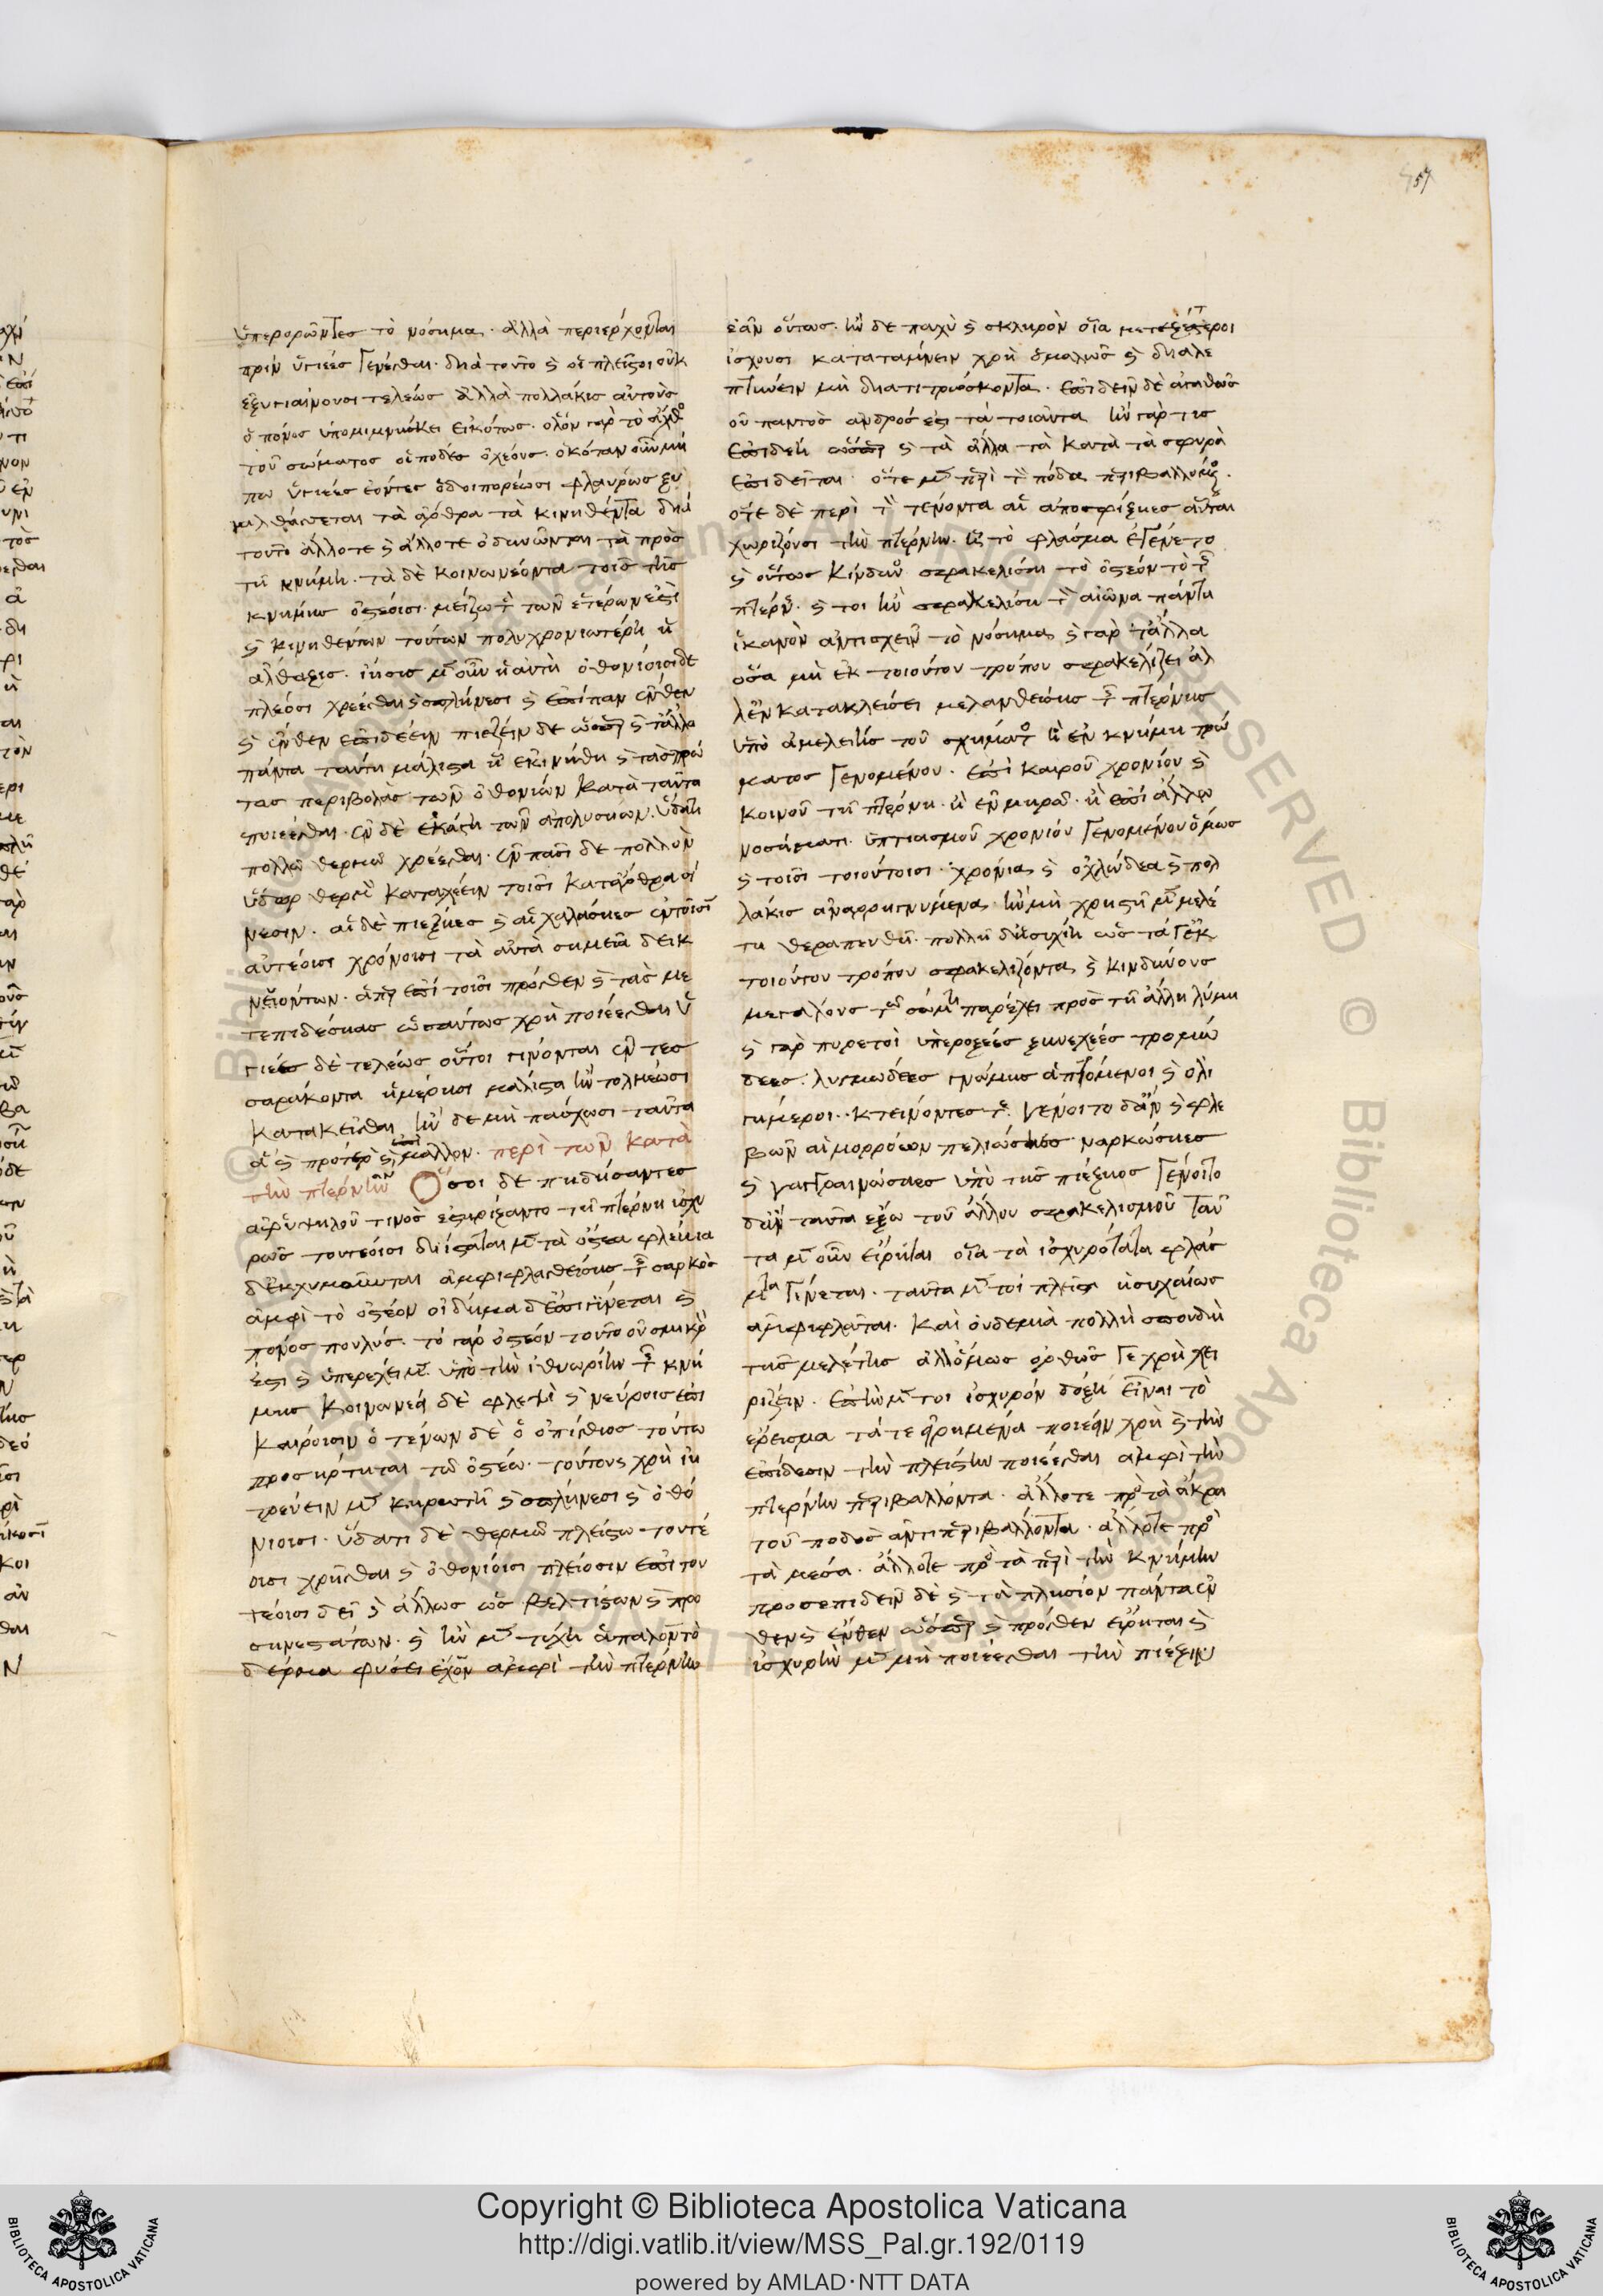 57
ὑπερορῶντες τὸ νόσημα· ἀλλὰ περιέρχονται
πρὶν ὑγιέες γενέσθαι· διὰ τοῦτο καὶ οἱ πλεῖστοι οὐκ
ἐξυγιαίνουσι τελέως ἀλλὰ πολλάκις αὐτοὺς
ὁ πόνος ὑπομιμνήσκει εἰκότως· ὅλον γὰρ τὸ ἄχθος
τοῦ σώματος οἱ πόδες ὀχέουσι· ὁκόταν οὖν μή
πω ὑγιέες ἐόντες ὁδοιπορέωσι φλαύρως ξυ
μαλθάσσεται τὰ ἄρθρα τὰ κινηθέντα διὰ
τοῦτο ἄλλοτε καὶ ἄλλοτε ὀδυνῶνται τὰ πρὸς
τῇ κνήμῃ· τὰ δὲ κοινωνέοντα τοῖς τῆς
κνήμης ὀστέοισι· μείζω τε τῶν ἑτέρων ἐστὶ
καὶ κινηθέντων τούτων πολυχρονιωτέρη ἡ
ἄλθεξις· ἴησις μὲν οὖν ἡ αὐτὴ ὀθονίοισι δὲ
πλέοσι χρέεσθαι καὶ σπλήνεσι καὶ ἐπίπαν ἔνθεν
καὶ ἔνθεν ἐπιδέειν πιέζειν δὲ ὥσπερ καὶ τἄλλα
πάντα ταύτῃ μάλιστα ᾗ ἐκινήθη καὶ τὰς πρώ
τας περιβολὰς τῶν ὀθονίων κατὰ ταῦτα
ποιέεσθαι· ἐν δὲ ἑκάστῃ τῶν ἀπολυσίων· ὕδατι
πολλῷ θερμῷ χρέεσθαι· ἐν πᾶσι δὲ πολλὸν
ὕδωρ θερμὸν καταχέειν τοῖσι κατ' ἄρθρα σί
νεσιν· αἱ δὲ πιέξιες καὶ αἱ χαλάσιες ἐν τοῖσιν
αὐτέοισι χρόνοισι τὰ αὐτὰ σημεῖα δεικ
νεϊόντων· ἅπερ ἐπὶ τοῖσι πρόσθεν καὶ τὰς με
τεπιδέσιας ὡσαύτως χρὴ ποιέεσθαι ὑ
γιέες δὲ τελέως οὗτοι γίνονται ἐν τεσ
σαράκοντα ἡμέρῃσι μάλιστα ἢν τολμέωσι
κατακεῖσθαι ἢν δὲ μὴ πάσχωσι ταῦτα
ἃ καὶ πρότερον καὶ ἐπὶ μᾶλλον· περὶ τῶν κατὰ
τὴν πτέρνην Ὅσοι δὲ πηδήσαντες
ἀφ' ὑψηλοῦ τινὸς ἐστηρίξαντο τῇ πτέρνῃ ἰσχυ
ρῶς τουτέοισι διίσταται μὲν τὰ ὀστέα φλέβια
δ' ἐκχυμοῦνται ἀμφιφλασθείσης τῆς σαρκὸς
ἀμφὶ τὸ ὀστέον οἴδημα δ' ἐπιγίνεται καὶ
πόνος πουλύς· τὸ γὰρ ὀστέον τοῦτο οὐ σμικρὸν
ἐστὶ καὶ ὑπερέχει μὲν ὑπὸ τὴν ἰθυωρίην τῆς κνή
μης κοινωνέει δὲ φλεψὶ καὶ νεύροις ἐπι
καίροισιν ὁ τένων δὲ ὁ ὀπίσθιος τούτῳ
προσήρτηται τῷ ὀστέῳ· τούτους χρὴ ἰη
τρεύειν μὲν κηρωτῇ καὶ σπλήνεσι καὶ ὀθο
νίοισι· ὕδατι δὲ θερμῷ πλείστῳ τουτέ
οισι χρῆσθαι καὶ ὀθονίοισι πλείοσιν ἐπὶ του
τέοισι δεῖ καὶ ἄλλως ὡς βελτίστων καὶ προ
σηνεστάτων· καὶ ἢν μὲν τύχῃ ἁπαλὸν τὸ
δέρμα φύσει ἔχον ἀμφὶ τὴν πτέρνην
ἐᾶν οὕτως· ἢν δὲ παχὺ καὶ σκληρὸν οἷα μετεξέτεροι
ἴσχουσι κατατάμνειν χρὴ ὁμαλῶς καὶ διαλε
πτύνειν μὴ διατιτρώσκοντα· ἐπιδεῖν δὲ ἀγαθῶς
οὐ παντὸς ἀνδρός ἐστι τὰ τοιαῦτα ἢν γάρ τις
ἐπιδέῃ ὥσπερ καὶ τὰ ἄλλα τὰ κατὰ τὰ σφυρὰ
ἐπιδεῖται· ὅτε μὲν περὶ τὸν πόδα περιβαλλόμενος·
ὅτε δὲ περὶ τὸν τένοντα αἱ ἀποσφίξιες αὗται
χωρίζουσι τὴν πτέρνην· ᾗ τὸ φλάσμα ἐγένετο
καὶ οὕτως κίνδυνος σφακελίσαι τὸ ὀστέον τὸ τῆς
πτέρνης· καί τοι ἢν σφακελίσῃ τὸν αἰῶνα πάντα
ἱκανὸν ἀντισχεῖν τὸ νόσημα καὶ γὰρ τἄλλα
ὅσα μὴ ἐκ τοιούτου τρόπου σφακελίζει ἀλ
λ' ἐν κατακλείσει μελανθείσης τῆς πτέρνης
ὑπὸ ἀμελείης τοῦ σχήματος ἢ ἐν κνήμῃ τρώ
ματος γενομένου· ἐπὶ καιροῦ χρονίου καὶ
κοινοῦ τῇ πτέρνῃ· ἢ ἐν μηρῷ· ἢ ἐπὶ ἄλλῳ
νοσήματι ὑπτιασμοῦ χρονίου γενομένου ὅμως
καὶ τοῖσι τοιούτοισι· χρόνια καὶ ὀχλώδεα καὶ πολ
λάκις ἀναρρηγνύμενα· ἢν μὴ χρηστῇ μὲν μελέ
τῃ θεραπευθῇ· πολλῇ δ' ἡσυχίῃ ὡς τά γ' ἐκ
τοιούτου τρόπου σφακελίζοντα καὶ κινδύνους
μεγάλους τῷ σώματι παρέχει πρὸς τῇ ἄλλῃ λύμῃ
καὶ γὰρ πυρετοὶ ὑπεροξέες ξυνεχέες τρομώ
δεες· λυγμώδεες γνώμης ἁπτόμενοι καὶ ὀλι
γήμεροι· κτείνοντες· γένοιτο δ' ἂν καὶ φλε
βῶν αἱμορρόων πελιώσιες ναρκώσιες
καὶ γαγγραινώσιες ὑπὸ τῆς πιέξιος γένοιτο
δ' ἂν ταῦτα ἔξω τοῦ ἄλλου σφακελισμοῦ ταῦ
τα μὲν οὖν εἴρηται οἷα τὰ ἰσχυρότατα φλάσ
ματα γίνεται· ταῦτα μέν τοι πλεῖστα ἡσυχαίως
ἀμφιφλᾶται· καὶ οὐδεμιὰ πολλὴ σπουδὴ
τῆς μελέτης ἀλλ' ὅμως ὀρθῶς γε χρὴ χει
ρίζειν· ἐπὴν μέν τοι ἰσχυρόν δόξῃ εἶναι τὸ
ἔρεισμα τά τε εἰρημένα ποιέειν χρὴ καὶ τὴν
ἐπίδεσιν τὴν πλείστην ποιέεσθαι ἀμφὶ τὴν
πτέρνην περιβάλλοντα· ἄλλοτε πρὸς τὰ ἄκρα
τοῦ ποδὸς ἀντιπεριβάλλοντα· ἄλλοτε πρὸς
τὰ μέσα· ἄλλοτε πρὸς τὰ περὶ τὴν κνήμην
προσεπιδεῖν δὲ καὶ τὰ πλησίον πάντα ἔν
θεν καὶ ἔνθεν ὥσπερ καὶ πρόσθεν εἴρηται καὶ
ἰσχυρὴν μὲν μὴ ποιέεσθαι τὴν πίεξιν
© Biblioteca Apostolica Vaticana
Copyright © Biblioteca Apostolica Vaticana
http://digi.vatlib.it/view/MSS_Pal.gr.192/0119
powered by AMLAD·NTT DATA
BIBLIOTECA APOSTOLICA VATICANA
BIBLIOTECA APOSTOLICA VATICANA